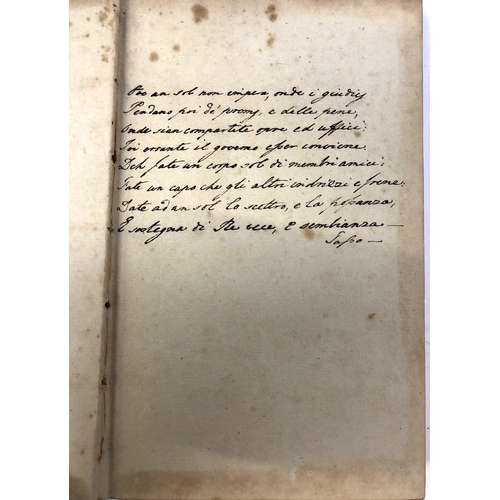 Ove un sol non impera, onde i giudicj
Pendano poi de' premj, e delle pene,
Onde sian compartite opre ed ufficj:
Ivi errante il governo esser conviene.
Deh fate un corpo sol di membri amici:
Fate un capo che gli altri indrizzi e frene:
Date ad un sol lo scettro, e la possanza,
E sostegna di Re vece, e sembianza—
Tasso—